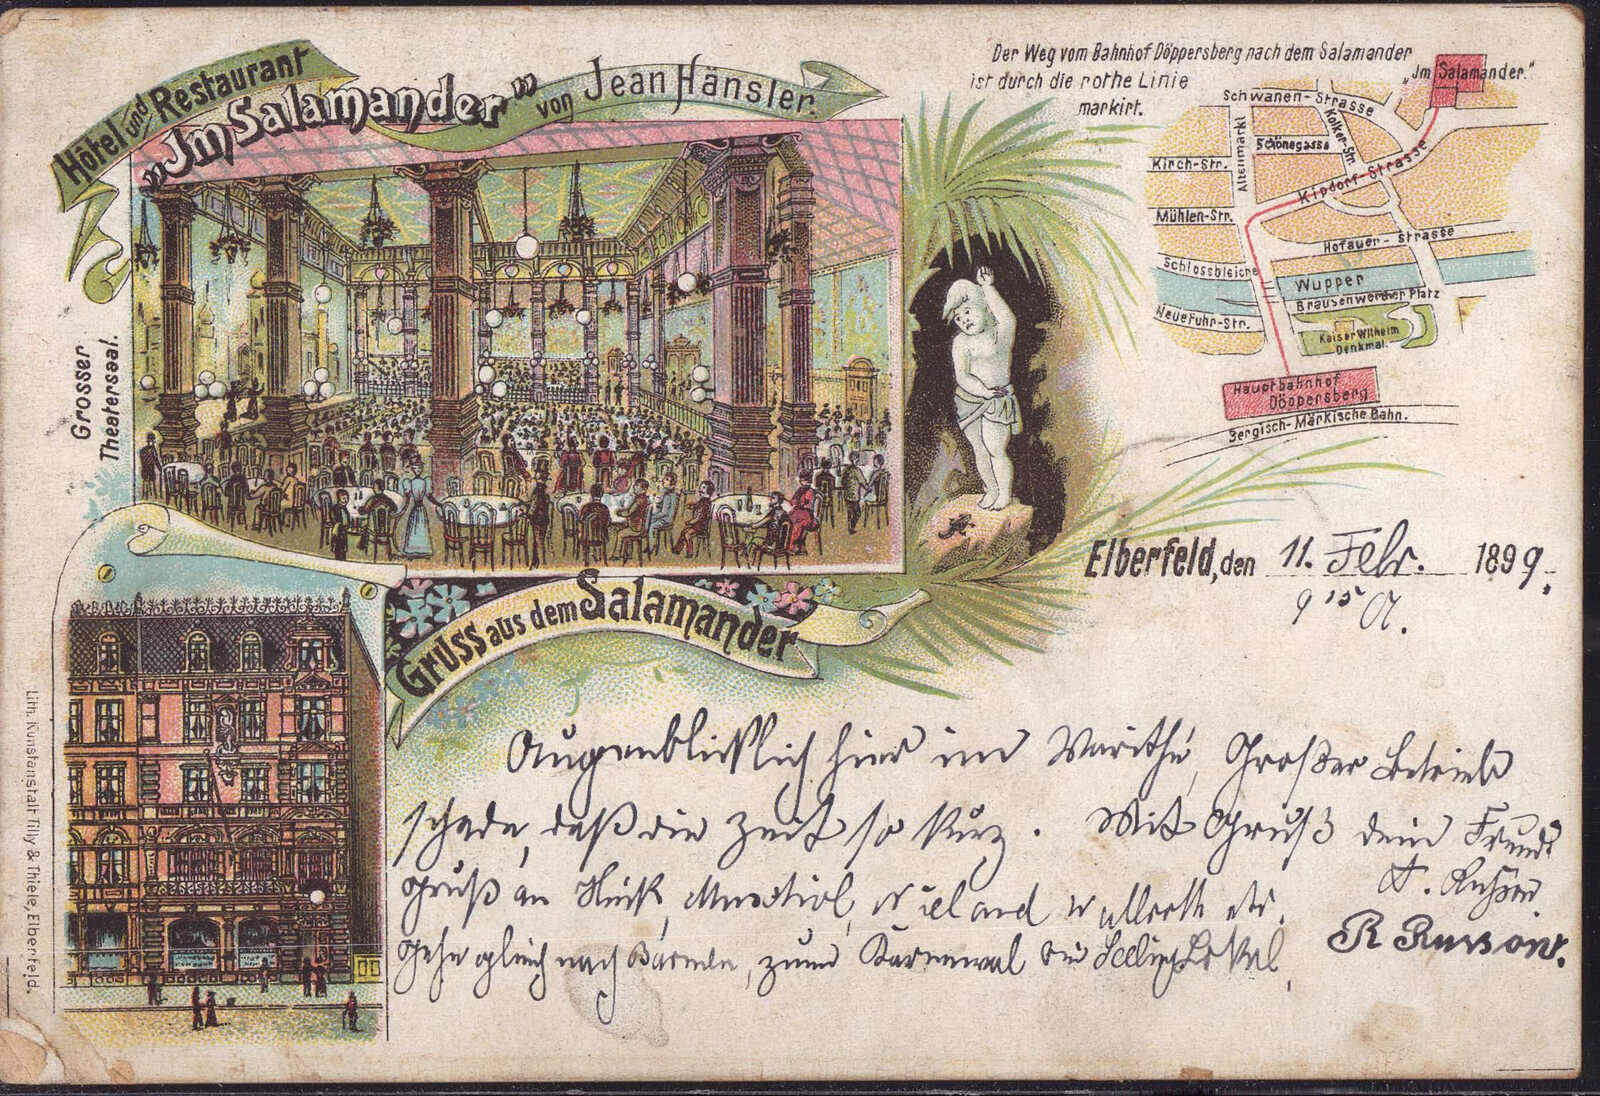 Hôtel und Restaurant
„Im Salamander”
von Jean Hänsler.
Grosser
Theatersaal.
Gruss aus dem Salamander
Lith. Kunstanstalt Tilly & Thiele, Elberfeld.
Der Weg vom Bahnhof Döppersberg nach dem Salamander
ist durch die rothe Linie
markirt.
„Im Salamander.”
Schwanen-Strasse
Kolker-Str.
Altenmarkt
Schönegasse
Kirch-Str.
Kipdorf-Strasse
Mühlen-Str.
Hofauer-Strasse
Schlossbleiche
Wupper
Brausenwerther Platz
Neuefuhr-Str.
Kaiser Wilhelm
Denkmal.
Hauptbahnhof
Döppersberg
Bergisch-Märkische Bahn.
Elberfeld, den 11. Febr. 1899.
9 15
Augenblicklich hier im Großer Betrieb
schade, daß die Zeit so kurz. Mit Gruß dein Freund
Gruß an
Gehe gleich nach Barmen, zum Karneval